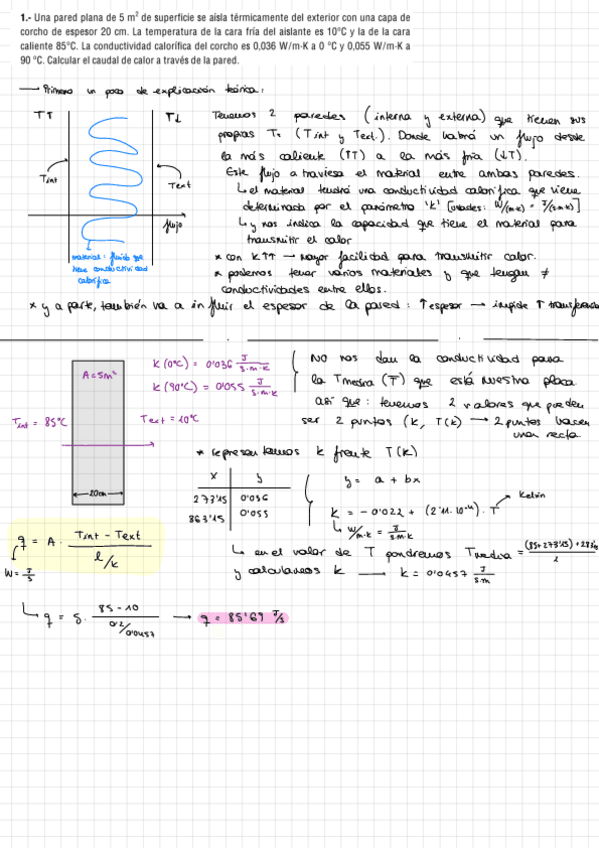 1.- Una pared plana de 5 m² de superficie se aísla térmicamente del exterior con una capa de
corcho de espesor 20 cm. La temperatura de la cara fría del aislante es 10ºC y la de la cara
caliente 85ºC. La conductividad calorífica del corcho es 0,036 W/m·K a 0 ºC y 0,055 W/m·K a
90 ºC. Calcular el caudal de calor a través de la pared.
→ Primero un poco de explicación teórica:
T↑
T↓
Tint
Text
flujo
material: fluido que
tiene conductividad
calorífica
Tenemos 2 paredes (interna y externa) que tienen sus
propias Tª (Tint y Text). Donde habrá un flujo desde
la más caliente (↑T) a la más fría (↓T).
Este flujo atraviesa el material entre ambas paredes.
↳ el material tendrá una conductividad calorífica que viene
determinada por el parámetro 'k' [unidades: W/(m·k) = J/(s·m·k)]
↳ y nos indica la capacidad que tiene el material para
transmitir el calor
* con K↑↑ → mayor facilidad para transmitir calor.
* podemos tener varios materiales y que tengan ≠
conductividades entre ellos.
* y a parte, también va a influir el espesor de la pared: ↑espesor → impide ↑ transferencia
A=5m²
Tint = 85ºC
Text = 10ºC
20cm
k(0ºC) = 0'036 J/s·m·K
k(90ºC) = 0'055 J/s·m·K
No nos dan la conductividad para
la Tmedia (T̅) que está nuestra placa
así que: tenemos 2 valores que pueden
ser 2 puntos (k, T(k)) → 2 puntos hacen
una recta
* representamos k frente T(k)
x y
273'15 0'036
363'15 0'055
y = a + bx
k = -0'022 + (2'11·10⁻⁴)·T
Kelvin
↳ W/m·k = J/s·m·k
q = A · (Tint - Text) / (l/k)
W = J/s
↳ en el valor de T pondremos Tmedia = (85+273'15)+283'15 / 2
y calculamos k → k = 0'0457 J/s·m
↳ q = 5 · (85 - 10) / (0'2/0'0457) → q = 85'69 J/s